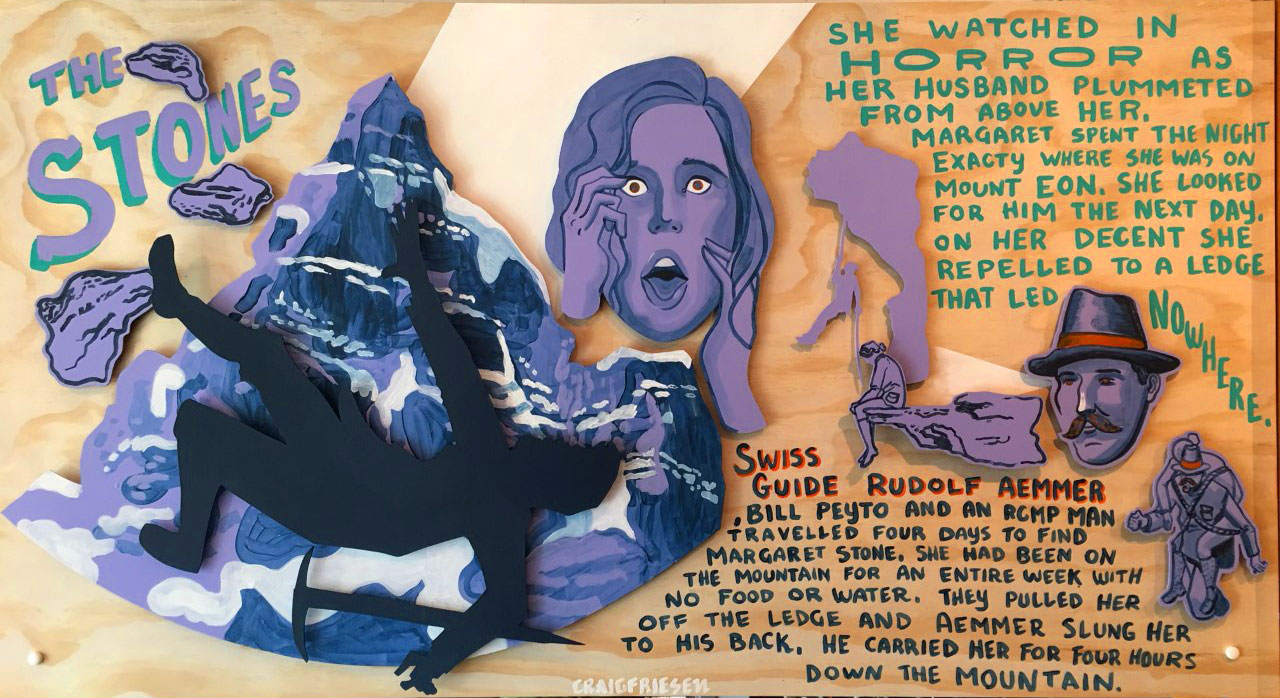 THE
STONES
SHE WATCHED IN
HORROR AS
HER HUSBAND PLUMMETED
FROM ABOVE HER.
MARGARET SPENT THE NIGHT
EXACTY WHERE SHE WAS ON
MOUNT EON. SHE LOOKED
FOR HIM THE NEXT DAY.
ON HER DECENT SHE
REPELLED TO A LEDGE
THAT LED
NOWHERE.
SWISS
GUIDE RUDOLF AEMMER
, BILL PEYTO AND AN RCMP MAN
TRAVELLED FOUR DAYS TO FIND
MARGARET STONE. SHE HAD BEEN ON
THE MOUNTAIN FOR AN ENTIRE WEEK WITH
NO FOOD OR WATER. THEY PULLED HER
OFF THE LEDGE AND AEMMER SLUNG HER
TO HIS BACK. HE CARRIED HER FOR FOUR HOURS
DOWN THE MOUNTAIN.
CRAIGFRIESEN